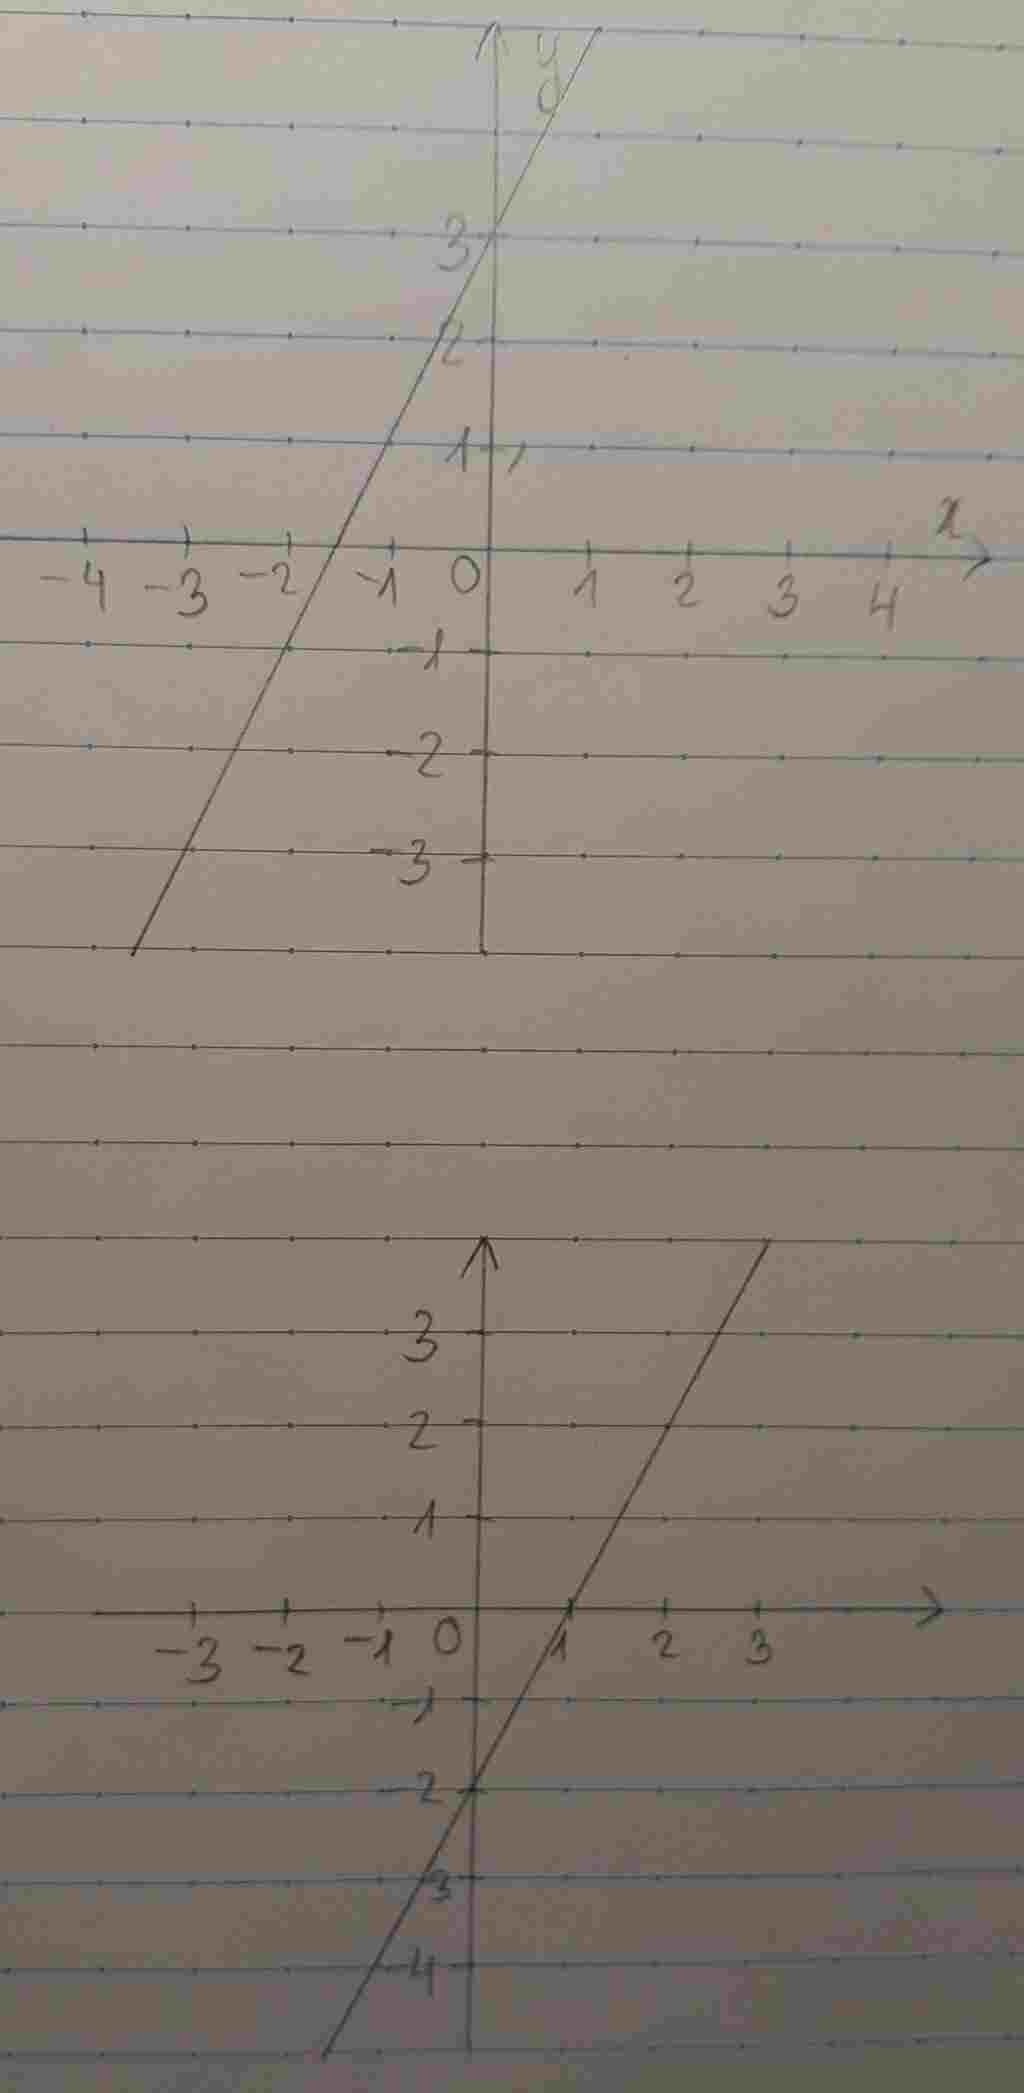 y
3
2
1
x
-4 -3 -2 -1 0 1 2 3 4
-1
-2
-3
3
2
1
-3 -2 -1 0 1 2 3
-1
-2
-3
-4